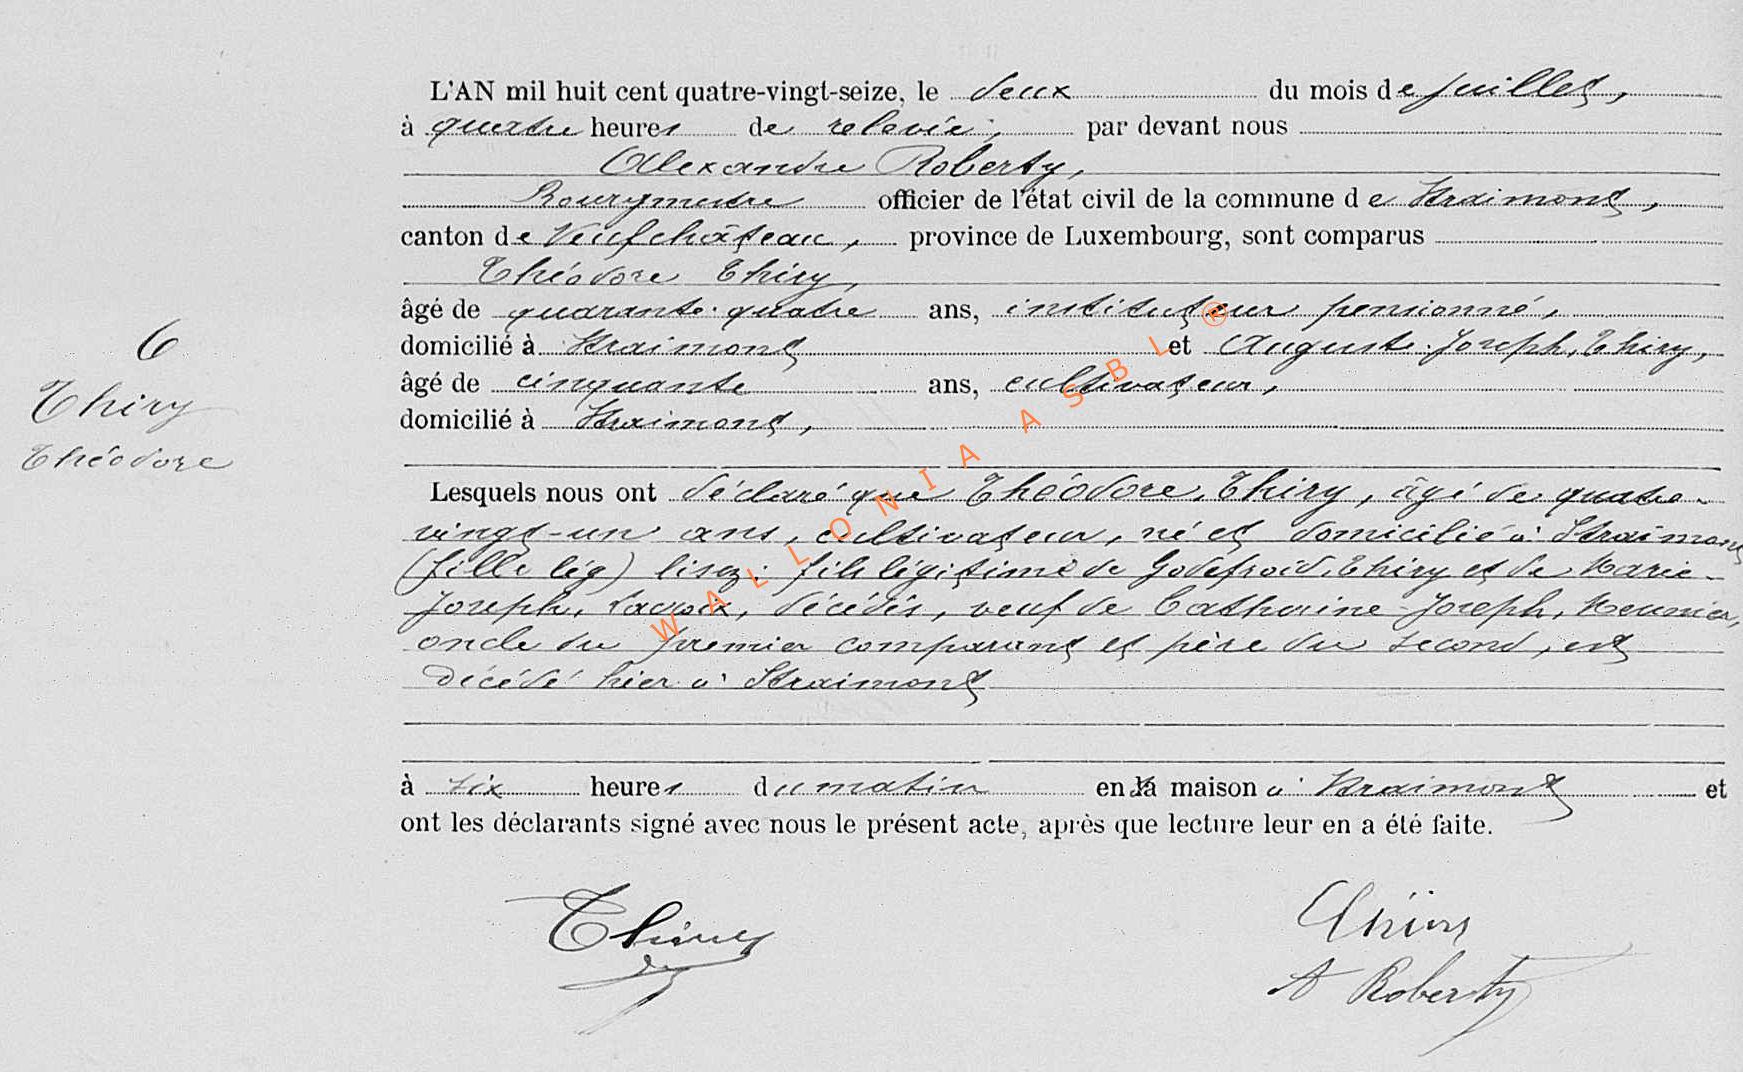 L'AN mil huit cent quatre-vingt-seize, le deux du mois de Juillet,
à quatre heures de relevée, par devant nous
Alexandre Roberty,
Bourgmestre officier de l'état civil de la commune de Straimont,
canton de Neufchâteau, province de Luxembourg, sont comparus
Théodore Thiry,
âgé de quarante-quatre ans, instituteur pensionné,
domicilié à Straimont et Auguste-Joseph, Thiry,
âgé de cinquante ans, cultivateur,
domicilié à Straimont,
6
Thiry
Théodore
Lesquels nous ont déclaré que Théodore, Thiry, âgé de quatre-
vingt-un ans, cultivateur, né et domicilié à Straimont
(fille lég) lisez: fils légitime de Godefroid, Thiry et de Marie-
Joseph, Lavoix, décédés, veuf de Catherine-Joseph, Meunier,
oncle du premier comparant et père du second, est
décédé hier à Straimont
à six heures du matin en sa maison à Straimont et
ont les déclarants signé avec nous le présent acte, après que lecture leur en a été faite.
Thiry
Thiry
A Roberty
WALLONIA ASBL ®